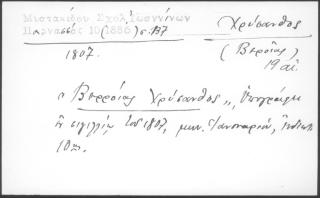 Μυστακίδου Σχολ. Ἰωαννίνων
Παρνασσό 10(1886) σ.137
Χρύσανθος
(Βερροίας)
19 αἰ.
1807.
ὁ Βερροίας Χρύσανθος „ ὑπογράφει
ἐν σιγιλλίῳ τοῦ 1807, μην. Ἰανουαρίῳ, Ἰνδικτ.
10ης.